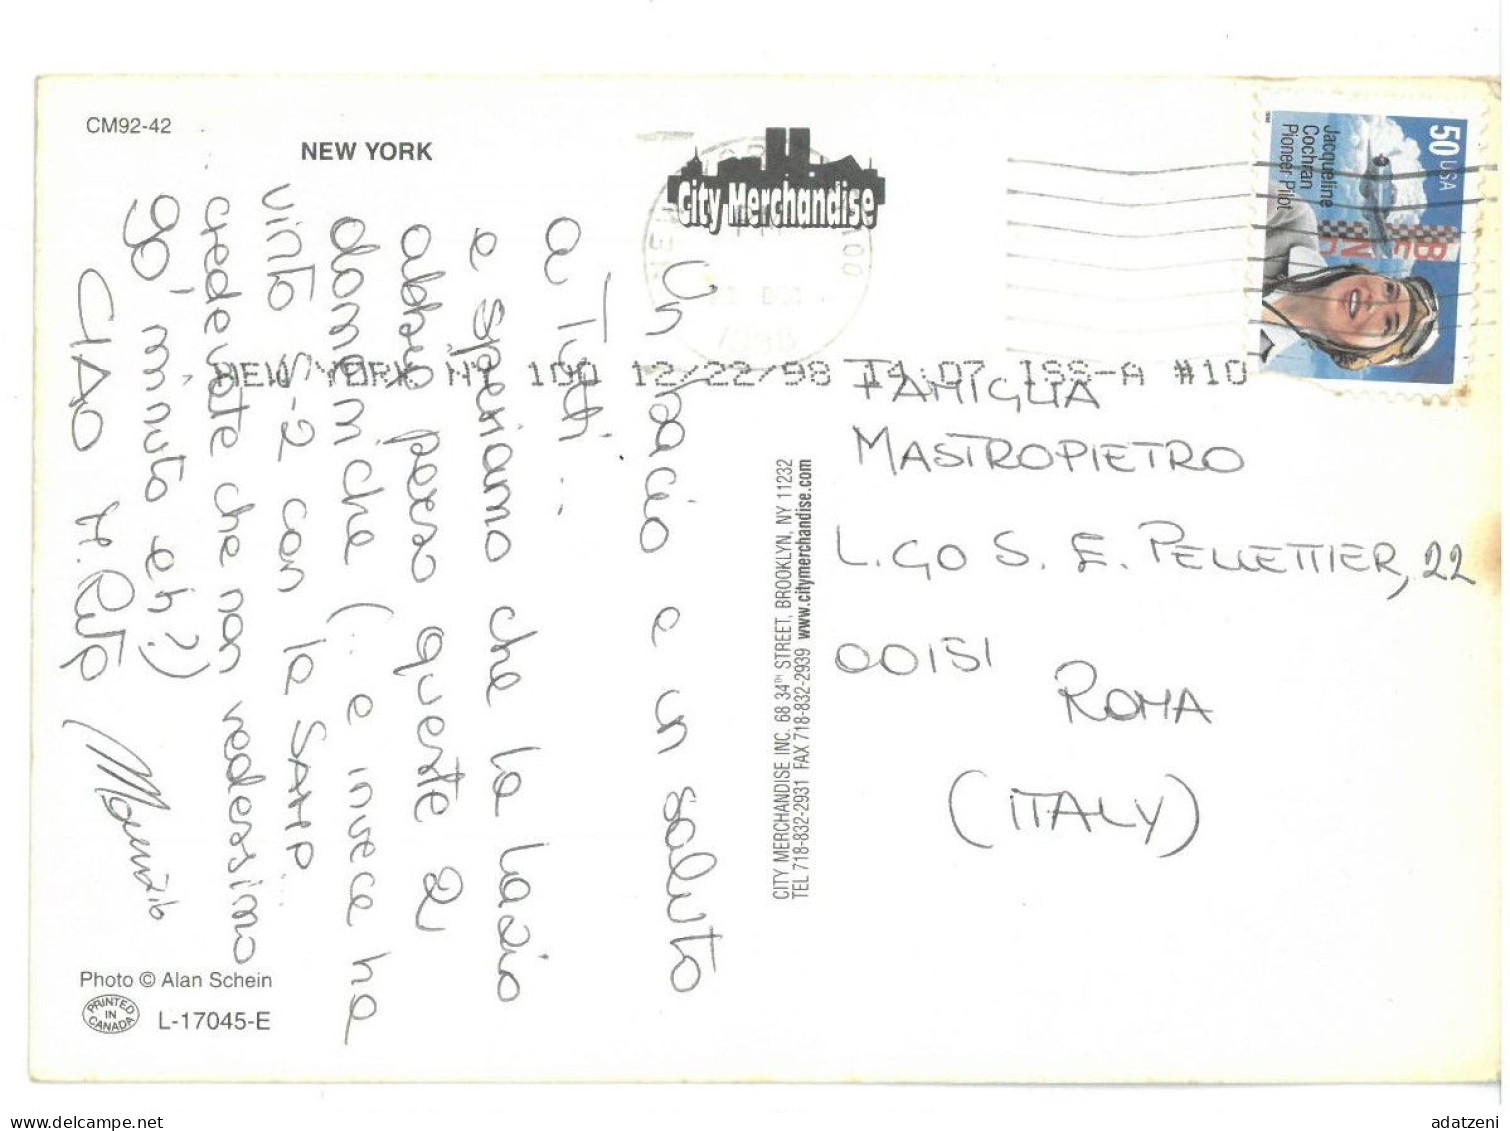 CM92-42
NEW YORK
City Merchandise
50 USA
Jacqueline
Cochran
Pioneer Pilot
DEC
1998
NEW YORK NY 100 12/22/98 14:07 ISS-A #10
Un bacio e un saluto
a Tutti...
e speriamo che la Lazio
abbia perso queste 2
domeniche (.. e invece ha
vinto 5-2 con la SAMP...
credevate che non vedessimo
90' minuto eh?)
CIAO
Maurizio
FAMIGLIA
MASTROPIETRO
L.GO S. E. PELLETTIER, 22
00151
ROMA
(ITALY)
CITY MERCHANDISE INC. 68 34TH STREET, BROOKLYN, NY 11232
TEL 718-832-2931 FAX 718-832-2939 www.citymerchandise.com
Photo © Alan Schein
PRINTED
IN
CANADA
L-17045-E
adatzeni